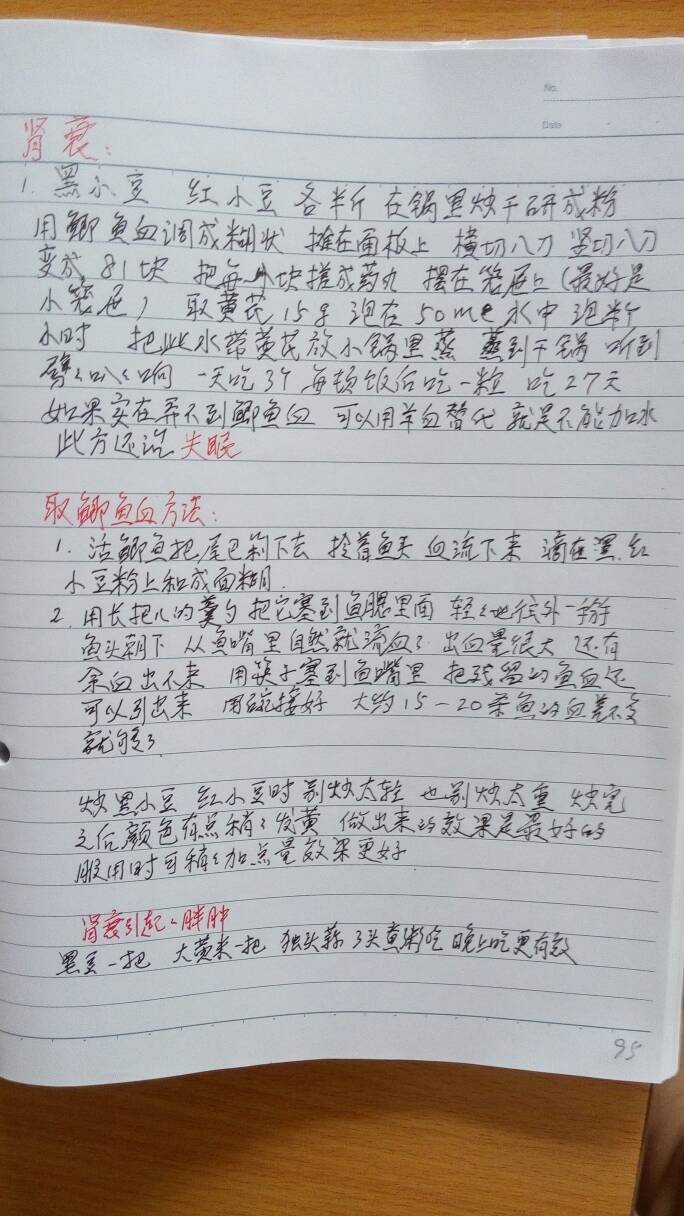 No.
Date
肾衰:
1. 黑小豆 红小豆 各半斤 在锅里炒干研成粉
用鲫鱼血调成糊状 摊在面板上 横切八刀 竖切八刀
变成81块 把每小块搓成药丸 摆在笼屉上(最好是
小笼屉) 取黄芪15g 泡在50ml水中 泡半个
小时 把此水带黄芪放小锅里蒸 蒸到干锅 听到
劈々叭々响 一天吃3个 每顿饭后吃一粒 吃27天
如果实在弄不到鲫鱼血 可以用羊血替代 就是不能加水
此方还治 失眠
取鲫鱼血方法:
1. 活鲫鱼把尾巴剁下去 拎着鱼头 血流下来 滴在黑.红
小豆粉上和成面糊.
2. 用长把儿的羹勺 把它塞到鱼腮里面 轻々地往外一掰
鱼头朝下 从鱼嘴里自然就流血了 出血量很大 还有
余血出不来 用筷子塞到鱼嘴里 把残留的鱼血还
可以引出来 用碗接好 大约15-20条鱼的血差不多
就够了
炒黑小豆 红小豆时 别炒太轻 也别炒太重 炒完
之后颜色有点稍々发黄 做出来的效果是最好的
服用时可稍々加点量效果更好
肾衰引起々胖肿
黑豆一把 大黄米一把 独头蒜3头煮粥吃 晚上吃更有效
95